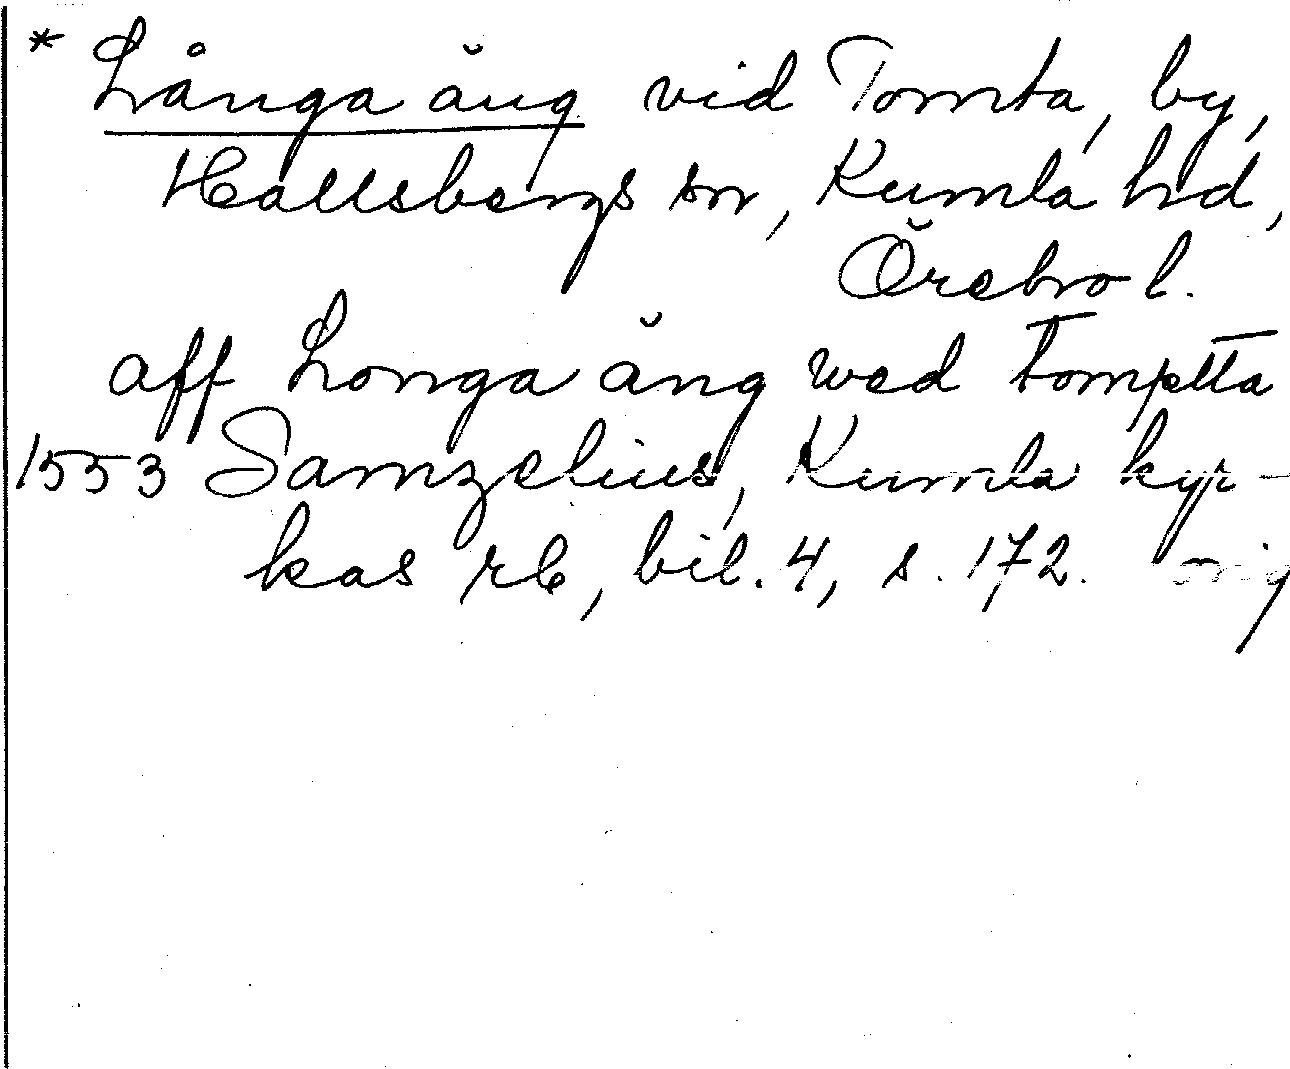 * Långa äng vid Tomta, by,
Hallsbergs sn, Kumla hd,
Örebro l.
aff Longa äng wed tomptta
1553 Samzelius, Kumla kyr-
kas rb, bil. 4, s. 172. orig